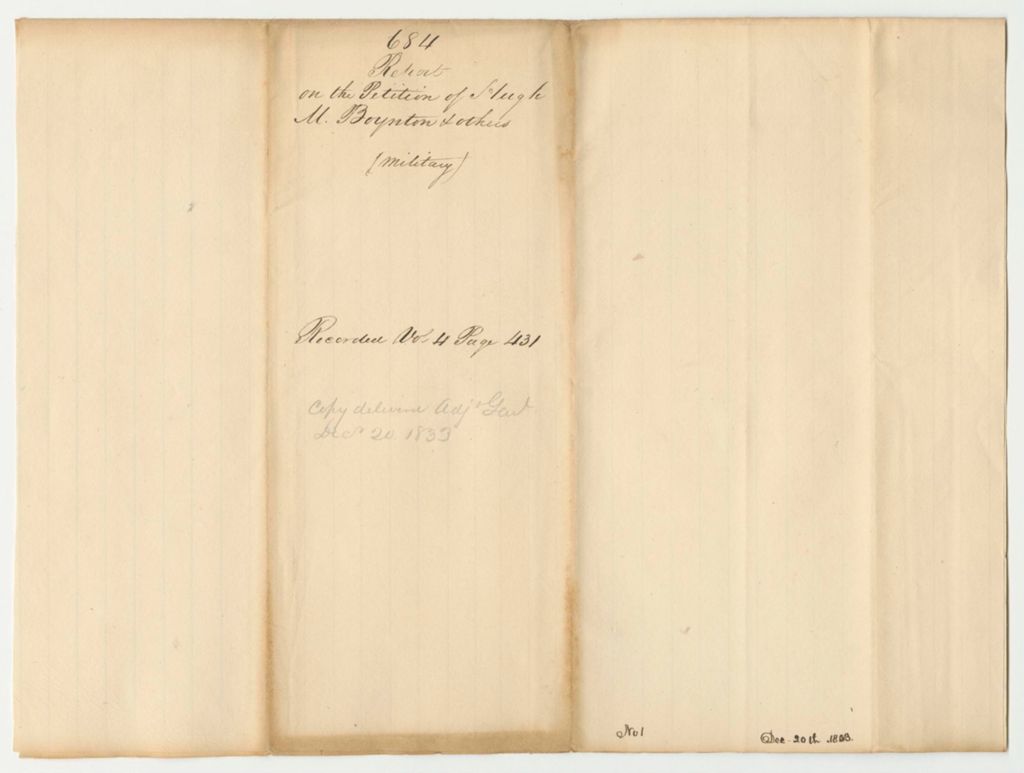 684
Report
on the Petition of Hugh
M. Boynton & others
(Military)
Recorded Vol. 4 Page 431
Copy delivered Adjt Genl
Decr 20 1833
No 1
Dec. 20th. 1833.